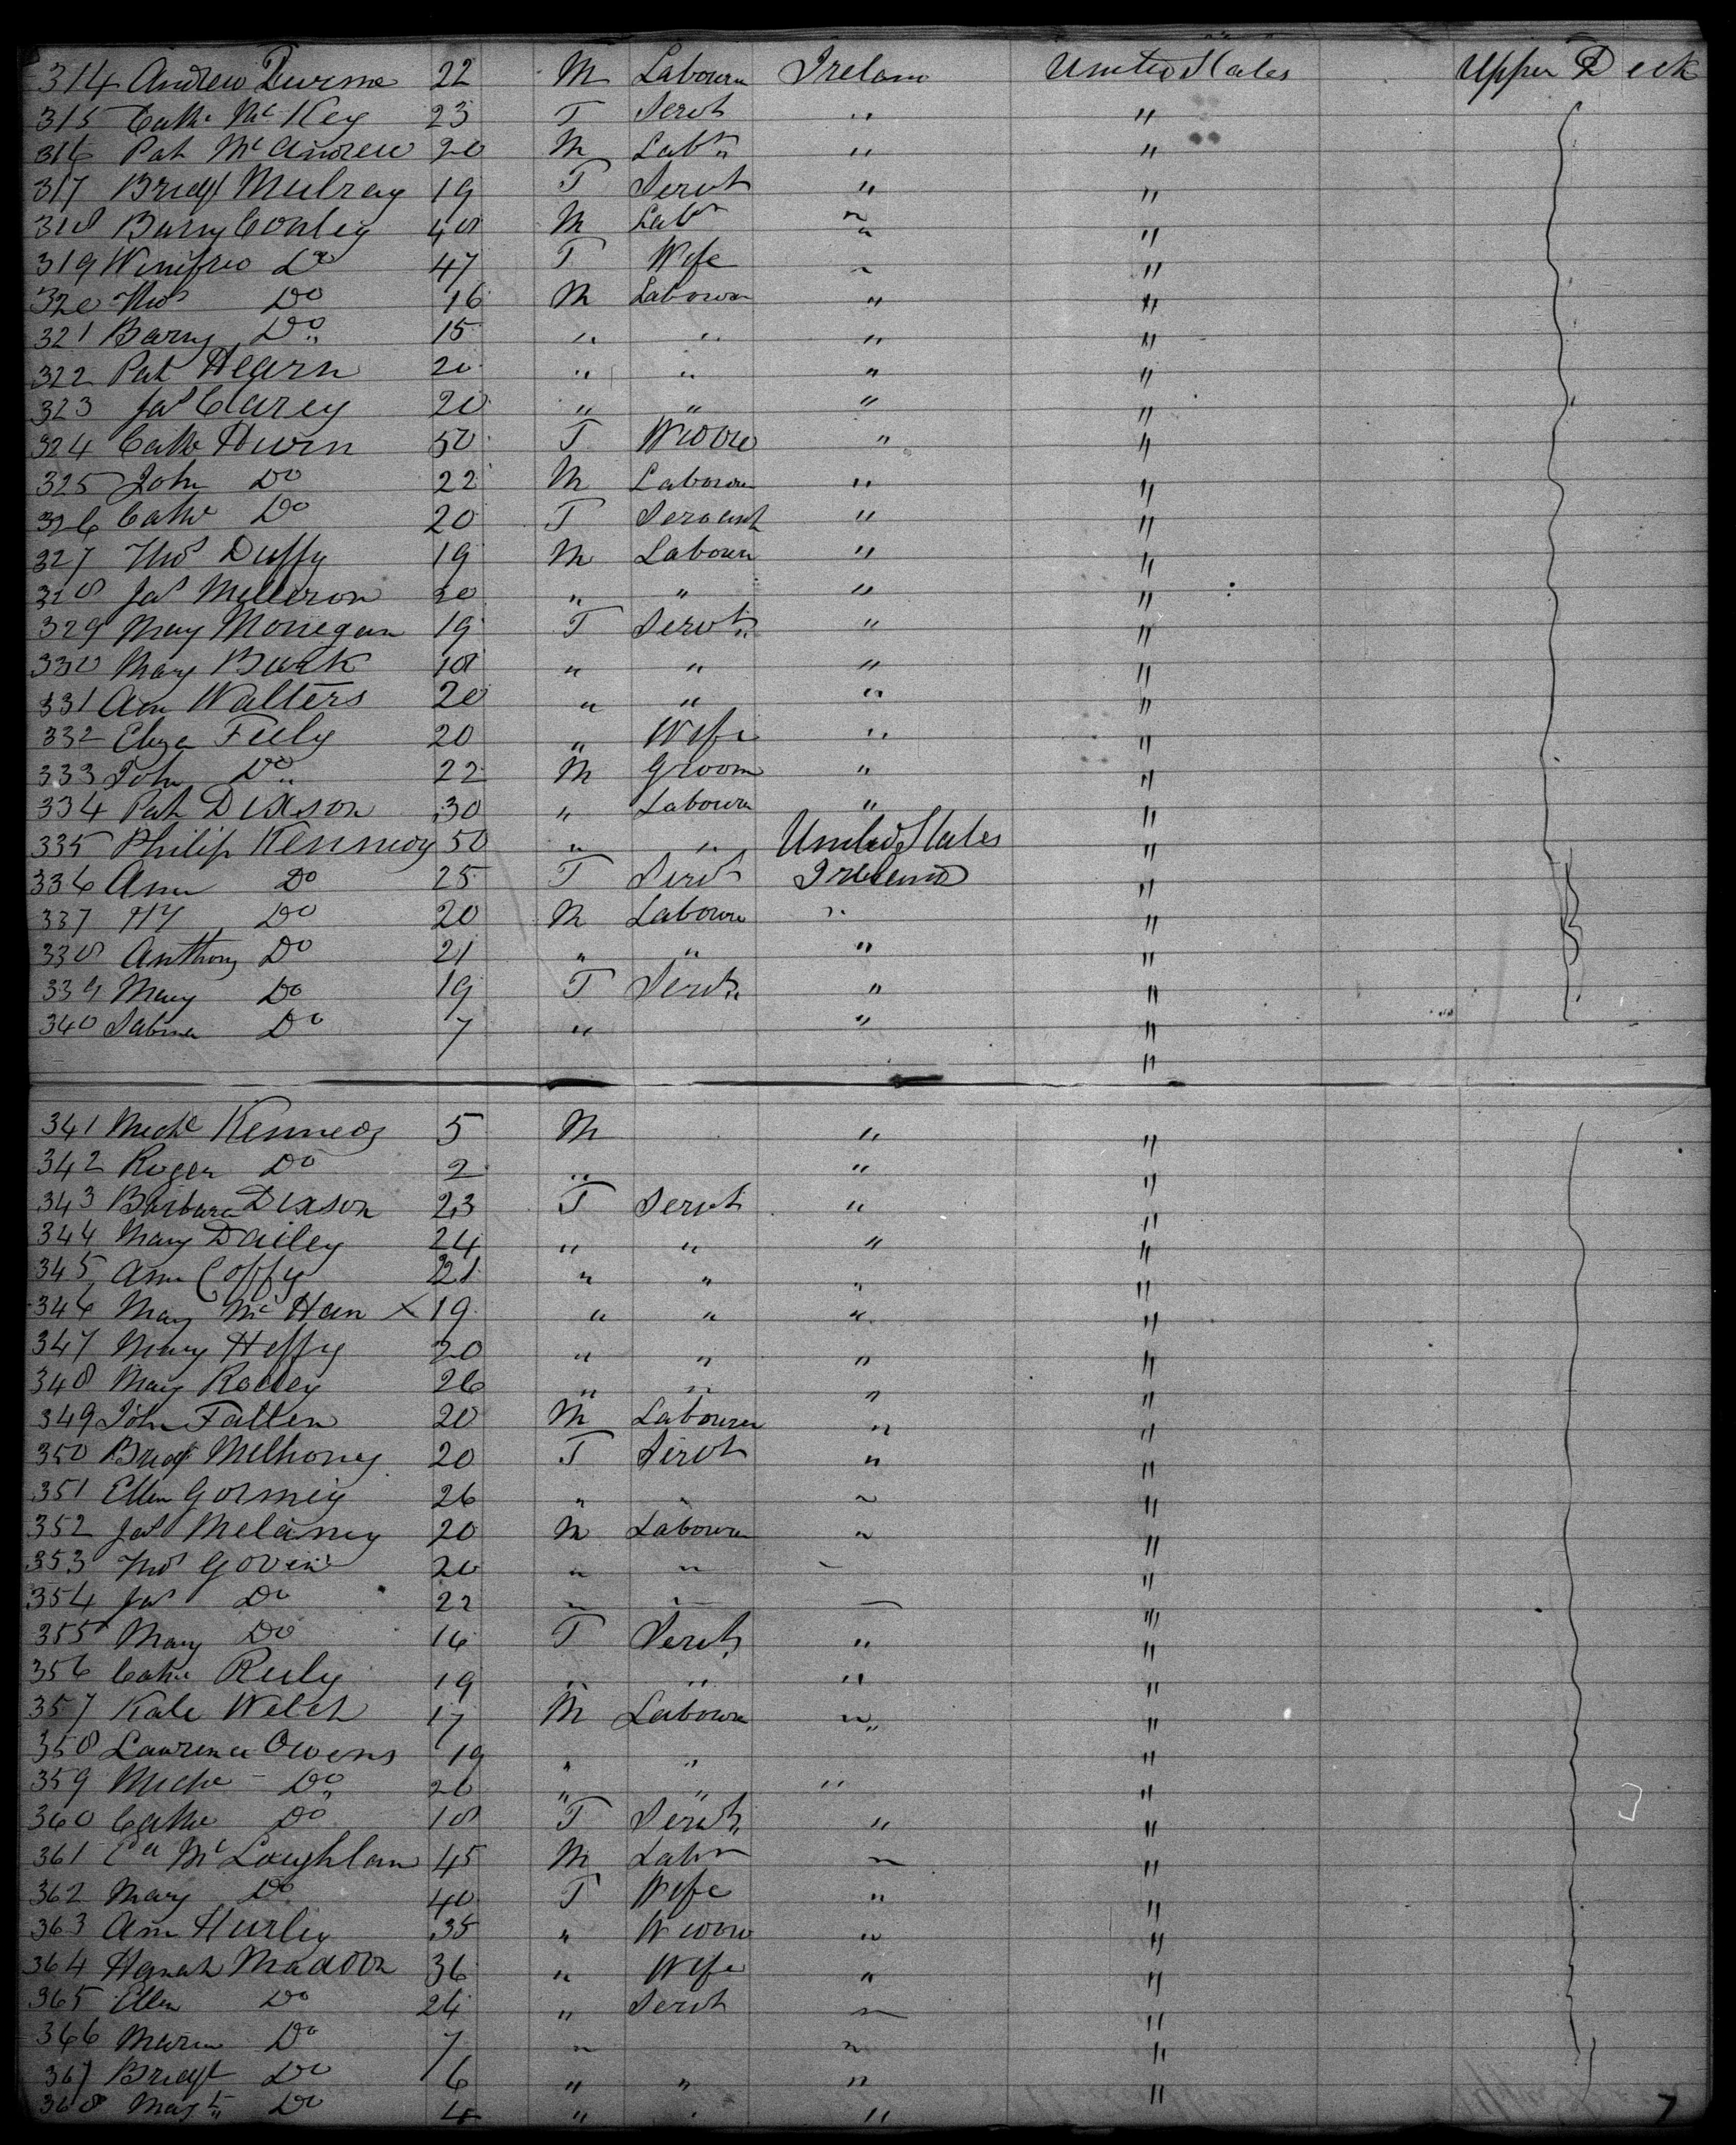 314 Andrew Durme 22 M Labourer Ireland United States Upper Deck
315 Cathe McKey 23 F Servt " "
316 Pat McAndrew 20 M Labr " "
317 Bridgt Mulray 19 F Servt " "
318 Barny Conley 48 M Labr " "
319 Winifred Do 47 F Wife " "
320 Thos Do 16 M Labourer " "
321 Barny Do 15 " " " "
322 Pat Hearn 20 " " " "
323 Jas Clarey 20 " " " "
324 Cathe Hurn 50 F Widow " "
325 John Do 22 M Labourer " "
326 Cathe Do 20 F Servant " "
327 Thos Duffy 19 M Labourer " "
328 Jas 20 " " " "
329 Mary Monegan 19 F Servt " "
330 Mary Burk 18 " " " "
331 Ann Walters 20 " " " "
332 Eliza Fuly 20 " Wife " "
333 John Do 22 M Groom " "
334 Pat Dixson 30 " Labourer " "
335 Philip Kennedy 50 " " United States "
336 Ann Do 25 F Servt Ireland "
337 Hy Do 20 M Labourer " "
338 Anthony Do 21 " " " "
339 Mary Do 19 F Servt " "
340 Sabina Do 7 " " "
"
341 Michl Kennedy 5 M " "
342 Roger Do 2 " " "
343 Barbara Dixson 23 F Servt " "
344 Mary Dailey 24 " " " "
345 Ann Coffy 21 " " " "
346 Mary McHan X 19 " " " "
347 Mary Heffy 20 " " " "
348 Mary 26 " " " "
349 John Fallen 20 M Labourer " "
350 Bridgt Melhoney 20 F Servt " "
351 Ellen Gormley 26 " " " "
352 Jas Melaney 20 M Labourer " "
353 Thos Goven 20 " " " "
354 Jas Do 22 " " " "
355 Mary Do 16 F Servt " "
356 Cathe Ruly 19 " " " "
357 Kale Welch 17 M Labourer " "
358 Lawrence Owens 19 " " "
359 Miche Do 20 " " " "
360 Cathe Do 18 F Servt " "
361 McLoughlan 45 M Labr " "
362 Mary Do 40 F Wife " "
363 Ann Hurley 35 " Widow " "
364 Hanah Madden 36 " Wife " "
365 Ellen Do 24 " Servt " "
366 Maria Do 7 " " "
367 Bridgt Do 6 " " " "
368 Magt Do 4 " " "
7